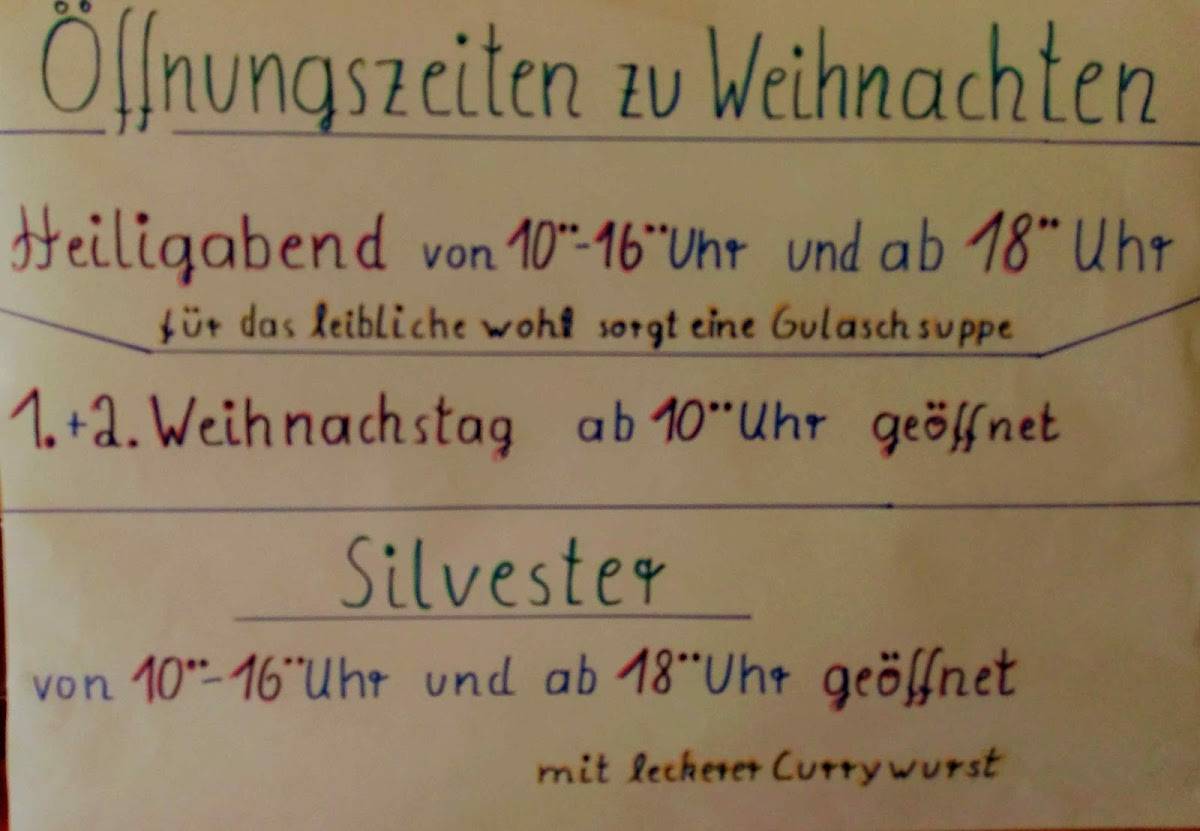 Öffnungszeiten zu Weihnachten
Heiligabend von 10¨-16¨Uhr und ab 18¨ Uhr
für das leibliche wohl sorgt eine Gulaschsuppe
1.+2. Weihnachstag ab 10¨Uhr geöffnet
Silvester
von 10¨-16¨Uhr und ab 18¨Uhr geöffnet
mit leckerer Currywurst